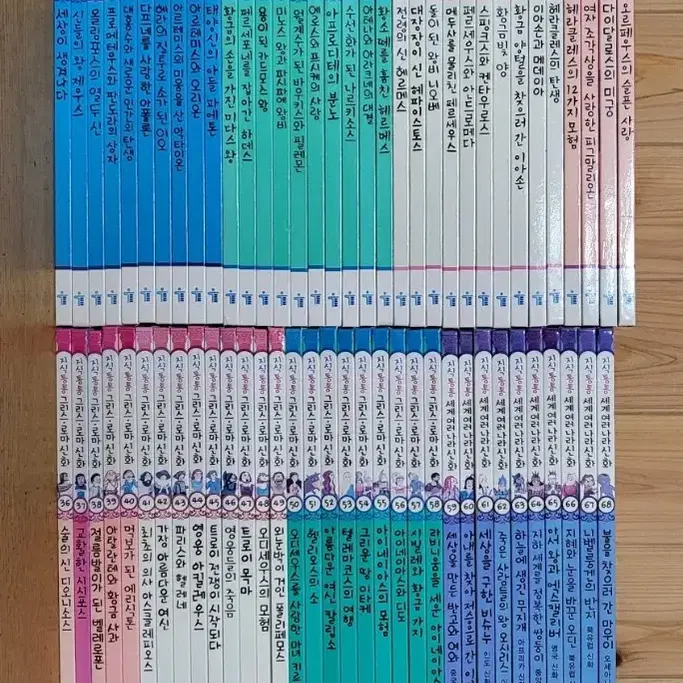 세상이 생겨나다
신들의 왕 제우스
올림포스의 열두 신
프로메테우스와 판도라의 상자
대홍수와 새로운 인간의 탄생
다프네를 사랑한 아폴론
헤라의 질투로 소가 된 이오
아르테미스의 미움을 산 악타이온
아르테미스와 오리온
태양신의 아들 파에톤
황금의 손을 가진 미다스 왕
페르세포네를 잡아간 하데스
용이 된 카드모스 왕
미노스 왕과 파시파에 왕비
신들에게
에로스와 프시케의 사랑
아프로디테의 분노
수선화가 된 나르키소스
아테나와 아라크네의 대결
황소 떼를 훔친 헤르메스
전령의 신 헤르메스
대장장이 신 헤파이스토스
돌이 된 왕비 니오베
메두사를 물리친 페르세우스
페르세우스와 안드로메다
스핑크스와 켄타우로스
황금 빛 양
황금 양털을 찾으러 간 이아손
이아손과 메데이아
헤라클레스의 탄생
헤라클레스의 12가지 모험
여자 조각상을 사랑한 피그말리온
다이달로스의 미궁
오르페우스의 슬픈 사랑
지식통통 그리스·로마 신화 36 술의 신 디오니소스
지식통통 그리스·로마 신화 37 교활한 시시포스
지식통통 그리스·로마 신화 38 절름발이가 된 벨레로폰
지식통통 그리스·로마 신화 39 아탈란테와 황금 사과
지식통통 그리스·로마 신화 40 먹보가 된 에리식톤
지식통통 그리스·로마 신화 41 최초의 의사 아스클레피오스
지식통통 그리스·로마 신화 42 가장 아름다운 여신
지식통통 그리스·로마 신화 43 파리스와 헬레네
지식통통 그리스·로마 신화 44 영웅 아킬레우스
지식통통 그리스·로마 신화 45 트로이 전쟁이 시작되다
지식통통 그리스·로마 신화 46 영웅들의 죽음
지식통통 그리스·로마 신화 47 트로이 목마
지식통통 그리스·로마 신화 48 오디세우스의 모험
지식통통 그리스·로마 신화 49 외눈박이 거인 폴리페모스
지식통통 그리스·로마 신화 50 오디세우스를 사랑한 마녀 키르
지식통통 그리스·로마 신화 51 헬리오스의 소
지식통통 그리스·로마 신화 52 아름다운 여신 칼립소
지식통통 그리스·로마 신화 53 텔레마코스의 여행
지식통통 그리스·로마 신화 54 그리운 땅 이타케
지식통통 그리스·로마 신화 55 아이네이아스의 모험
지식통통 그리스·로마 신화 56 아이네이아스와 디도
지식통통 그리스·로마 신화 57 시빌레와 황금 가지
지식통통 그리스·로마 신화 58 라비니움을 세운 아이네이아스
지식통통 세계여러나라 신화 59 세상을 만든 반고와 여와 중국
지식통통 세계여러나라 신화 60 아내를 찾아 저승으로 간 이
지식통통 세계여러나라 신화 61 세상을 구한 비슈누 인도 신화
지식통통 세계여러나라 신화 62 죽은 사람들의 왕 오시리스
지식통통 세계여러나라 신화 63 하늘에 생긴 무지개 아프리카 신화
지식통통 세계여러나라 신화 64 지하 세계를 정복한 쌍둥이
지식통통 세계여러나라 신화 65 아서 왕과 엑스칼리버 영국 신화
지식통통 세계여러나라 신화 66 지혜와 눈을 바꾼 오딘 북유럽
지식통통 세계여러나라 신화 67 니벨룽겐의 반지 북유럽 신화
지식통통 세계여러나라 신화 68 불을 찾으러 간 마우이 오세아니